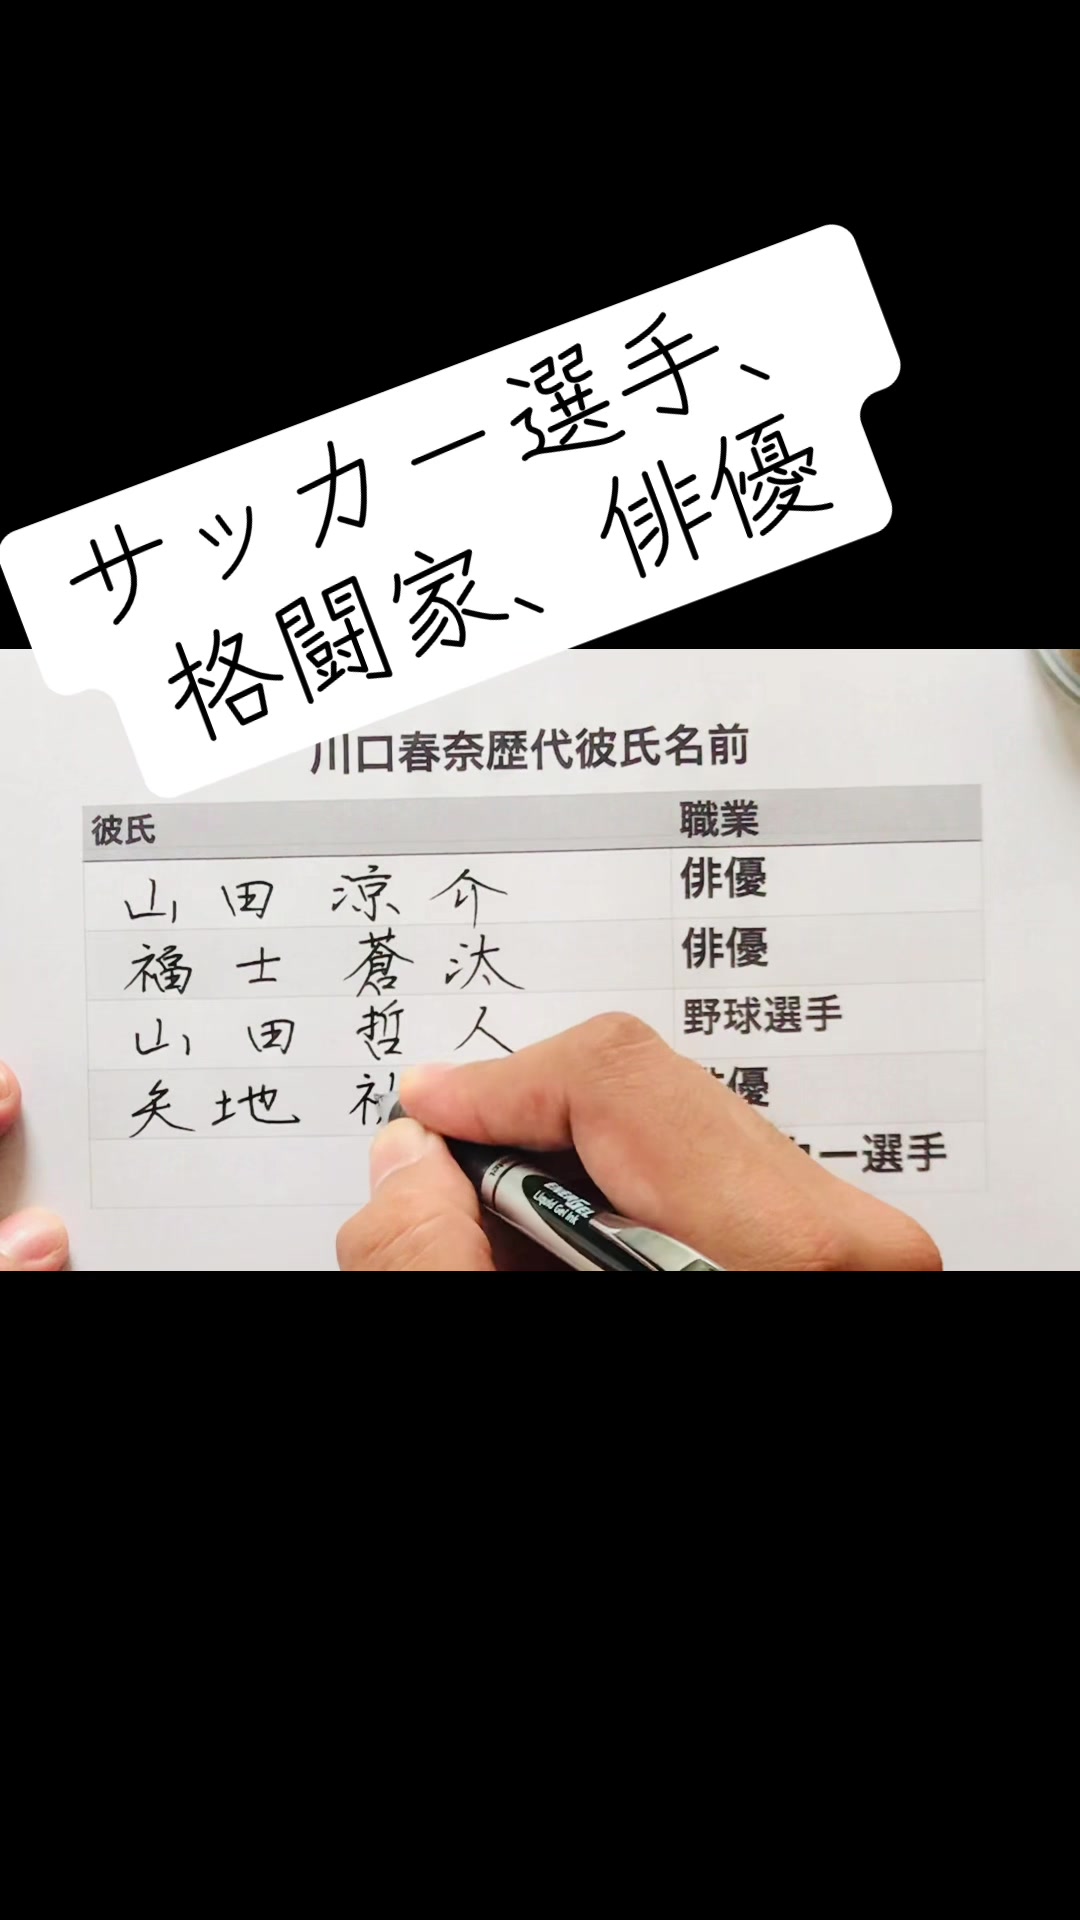 サッカー選手、
格闘家、俳優
川口春奈歴代彼氏名前
彼氏 職業
山田涼介 俳優
福士蒼汰 俳優
山田哲人 野球選手
矢地 優
カー選手
ENERGEL
Liquid Gel Ink